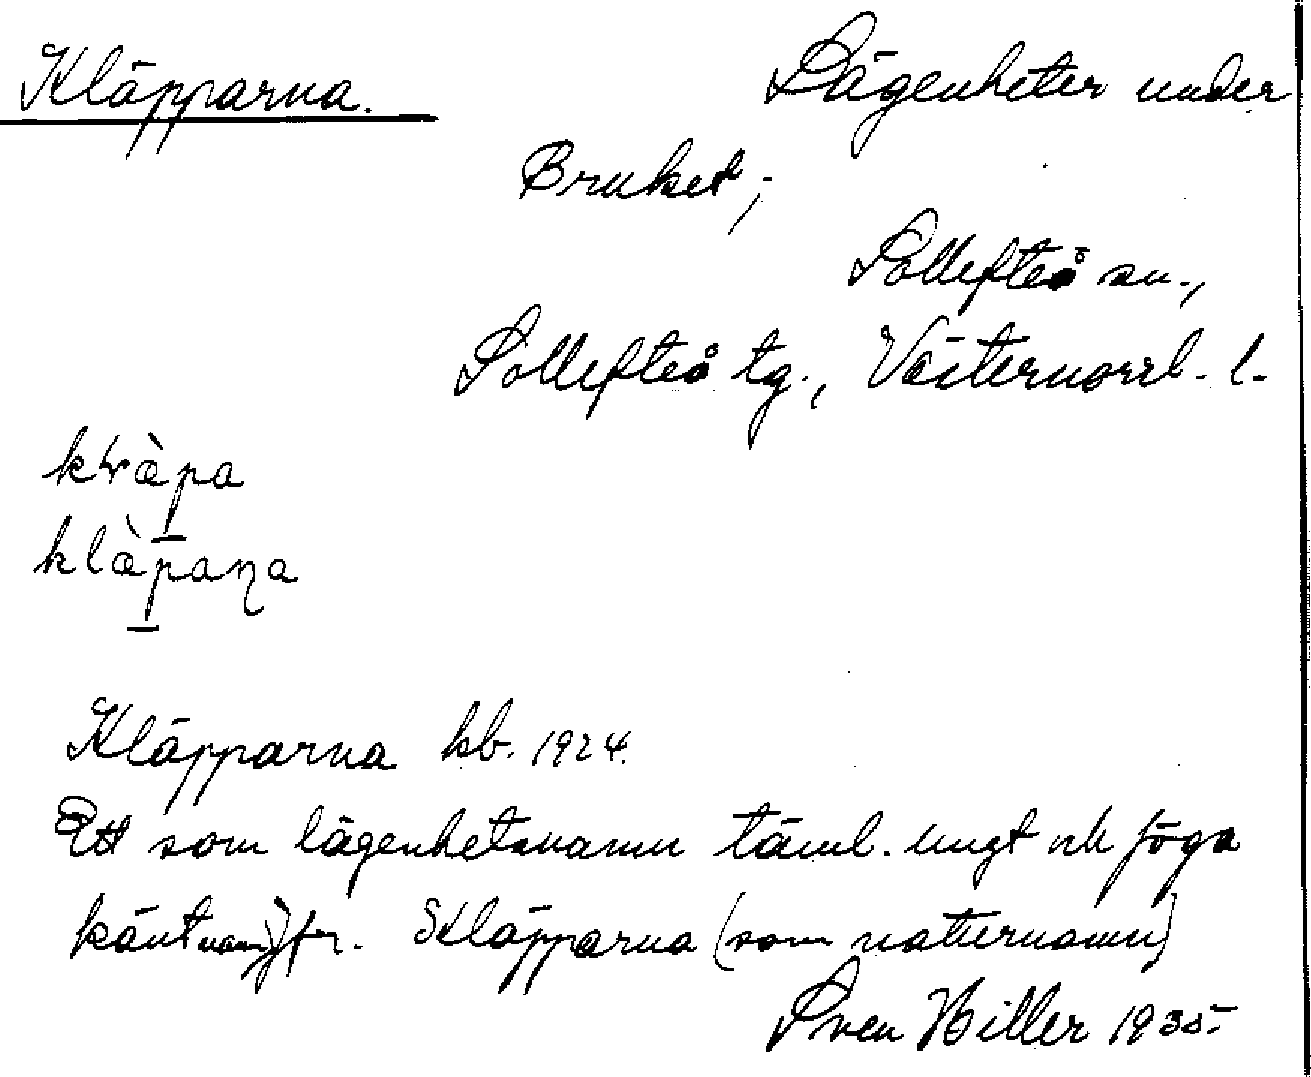 Kläpparna. Lägenheter under
Bruket;
Sollefteå sn.,
Sollefteå tg., Västernorrl. l.
klàpa
klàpaņa
Kläpparna kb. 1924.
Ett som lägenhetsnamn täml. ungt och föga
känt namn, jfr. Kläpparna (som naturnamn)
Sven Hiller 1935